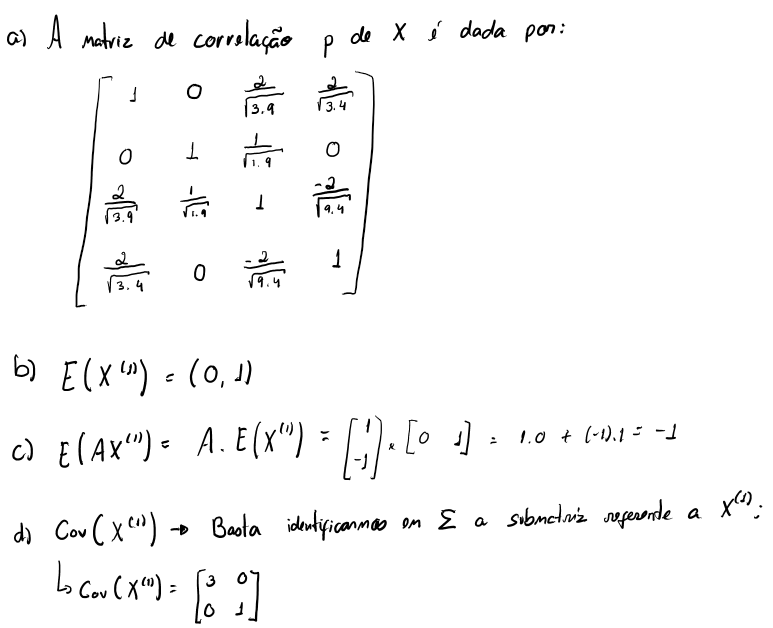 a) A matriz de correlação p de X é dada por:
1 0 2/√3.9 2/√3.4
0 1 1/√1.9 0
2/√3.9 1/√1.9 1 -2/√9.4
2/√3.4 0 -2/√9.4 1
b) E(X⁽¹⁾) = (0, 1)
c) E(AX⁽¹⁾) = A. E(X⁽¹⁾) = [1 -1] * [0 1] = 1.0 + (-1).1 = -1
d) Cov(X⁽¹⁾) → Basta identificarmos em Σ a submatriz referente a X⁽¹⁾:
↳ Cov(X⁽¹⁾) = [3 0
0 1]